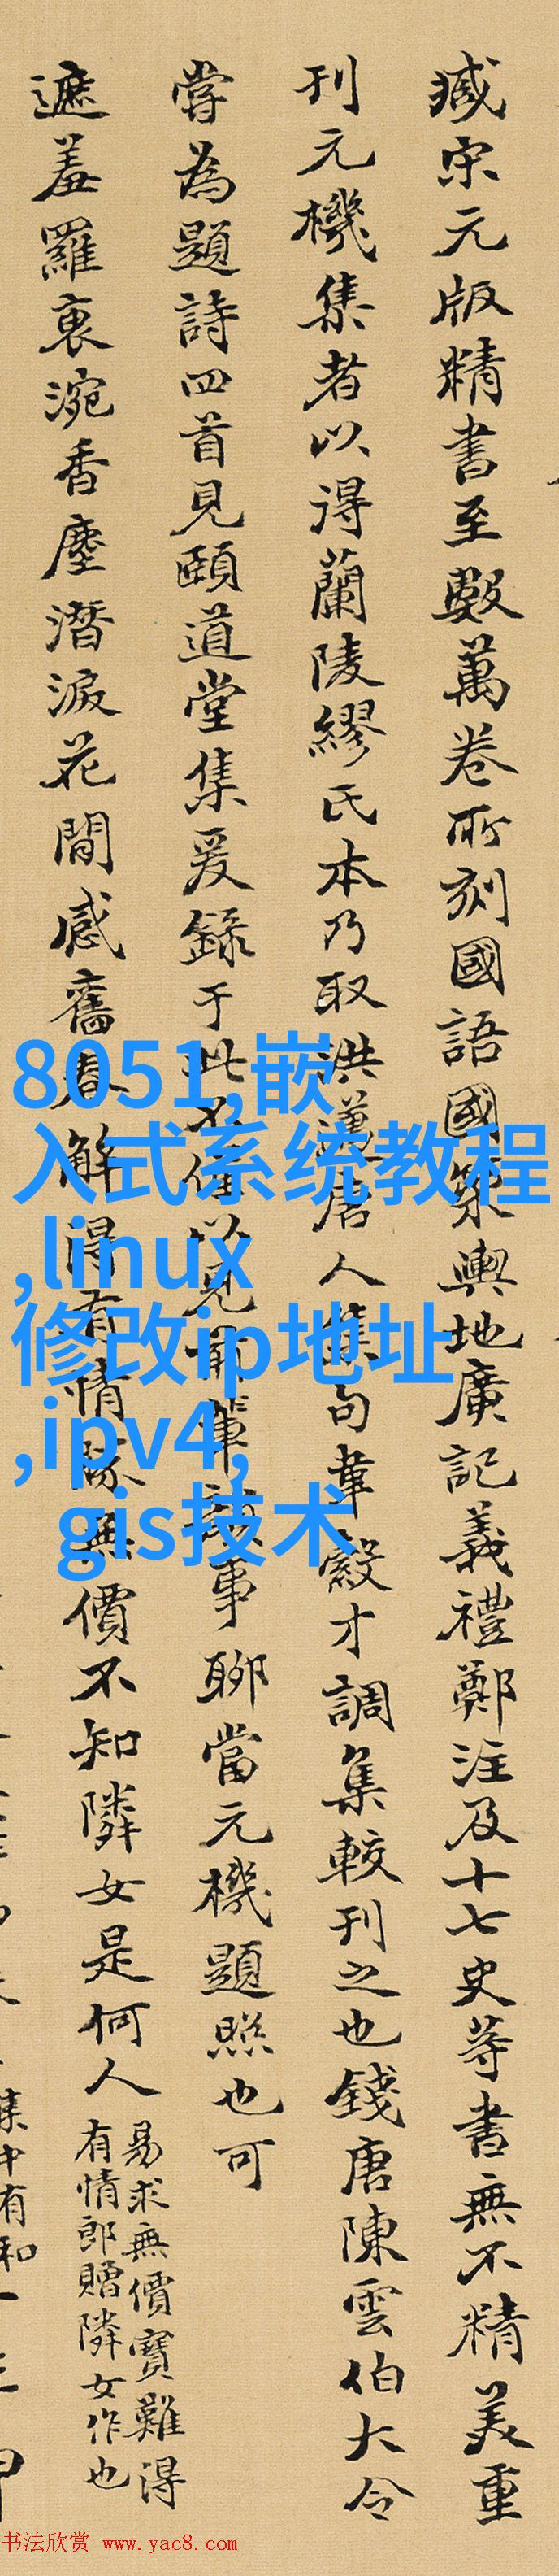 臧宋元版精書至數萬卷所刻國語國策輿地廣記義禮鄭注及十七史等書無不精美重
刊元機集者以得蘭陵繆氏本乃取洪邁唐人集句韋縠才調集較刊之也錢唐陳雲伯大令
嘗為題詩四首見頤道堂集爰錄于此以見前輩事聊當元機題照也可
遮羞羅裏涴香塵潛淚花間感舊春解得有情無價不知隣女是何人
易求無價寶難得
有情郎贈隣女作也
集中有和一
8051,嵌
入式系统教程
,linux
修改ip地址
,ipv4,
gis技术
书法欣赏 www.yac8.com